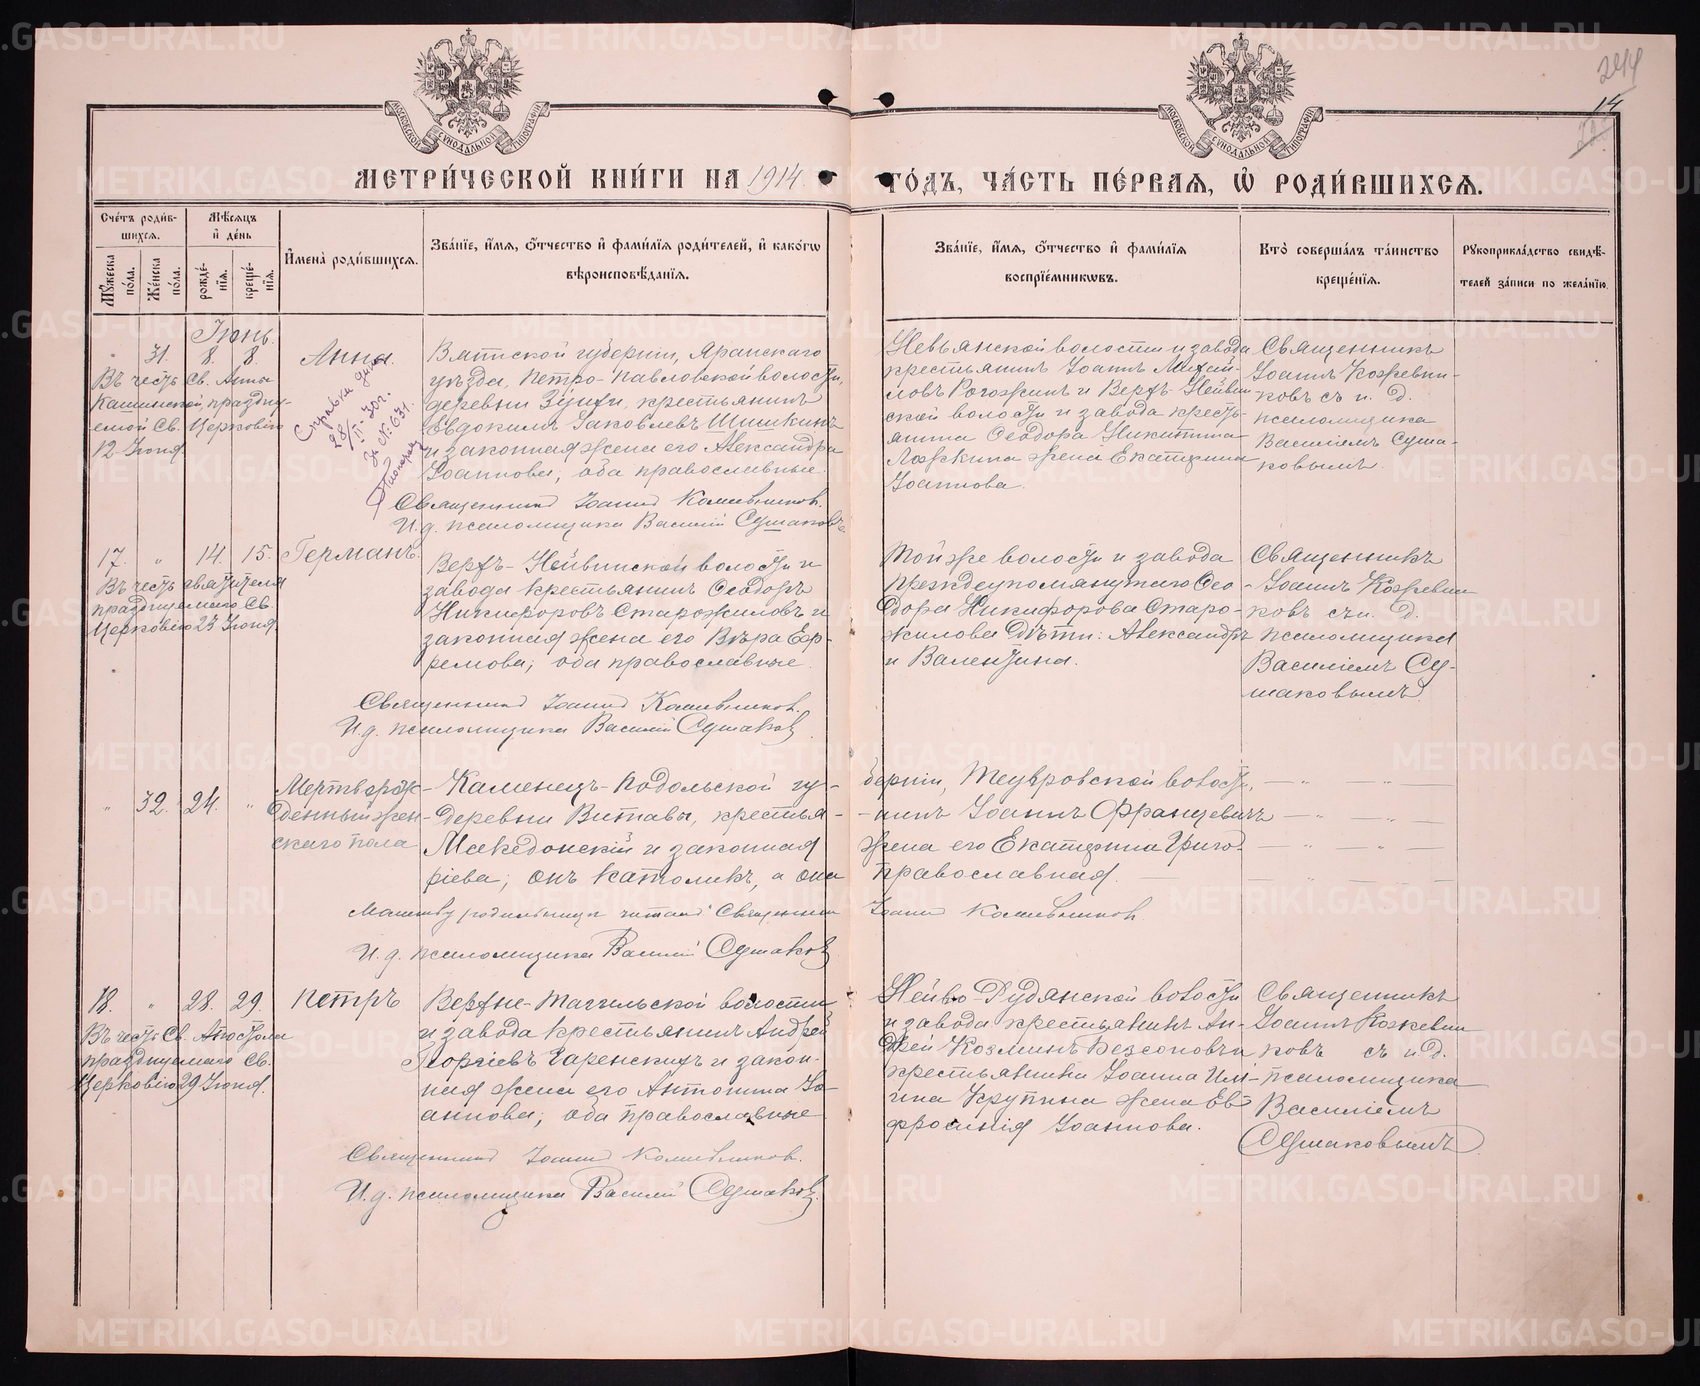 МЕТРИ́ЧЕСКОЙ КНИ́ГИ НА 1914
ГО́ДЪ, ЧА́СТЬ ПЕ́РВАЯ, Ѡ҆ РОДИ́ВШИХСЯ.
14
Сче́тъ роди́в-
шихся.
Мѣ́сяцъ
и҆ де́нь
Му́жеска
по́ла.
Же́нска
по́ла.
рожде́-
нїя.
креще́-
нїя.
И҆мена̀ роди́вшихся.
Зва́нїе, и҆́мя, ѻ҆́тчество и҆ фами́лїя роди́телей, и҆ како́гѡ
вѣроисповѣ́данїя.
Зва́нїе, и҆́мя, ѻ҆́тчество и҆ фами́лїя
воспрїе́мниковъ.
Кто̀ соверша́лъ та́инство
креще́нїя.
Рукоприкла́дство свидѣ́-
телей за́писи по жела́нїю.
Іюнь.
" 31. 8. 8.
Въ честь Св. Анны
Кашинской, праздну-
емой Св. Церковію
12 Іюня.
Анна.
Справка дана
28/II-30 г.
за № 631.
Вятской губерніи, Яранскаго
уѣзда, Петро-Павловской волости,
деревни Зунги, крестьянинъ
Евдокимъ Іаковлевъ Шишкинъ
и законная жена его Александра
Іоаннова, оба православные.
Священникъ Іоаннъ Кожевников.
И. д. псаломщика Василій Сушаковъ
Невьянской волости и завода
крестьянинъ Іоаннъ Михай-
ловъ Рогожинъ и Верхъ-Нейвин-
ской волости и завода кресть-
янина Ѳеодора Никитина
Ложкина жена Екатерина
Іоаннова.
Священникъ
Іоаннъ Кожевни-
ковъ съ и. д.
псаломщика
Василіемъ Суша-
ковымъ.
17. " 14. 15.
Въ честь святителя
празднуемаго Св.
Церковію 23 Іюня.
Германъ.
Верхъ-Нейвинской волости и
завода крестьянинъ Ѳеодоръ
Никифоровъ Старожиловъ и
законная жена его Вѣра Еф-
ремова; оба православные.
Священникъ Іоаннъ Кожевников.
И. д. псаломщика Василій Сушаков
Той же волости и завода
преждеупомянутаго Ѳео-
дора Никифорова Старо-
жилова дѣти: Александръ
и Валентина.
Священникъ
Іоаннъ Кожевни-
ковъ съ и. д.
псаломщика
Василіемъ Су-
шаковымъ
" 32. 24. "
Мертворож-
денный жен-
скаго пола
Каменецъ-Подольской гу-
берніи, волости,
деревни Витавы, крестья-
нинъ Іоаннъ Францевичъ
Македонскій и законная
жена его Екатерина Григо-
ріева; онъ католикъ, а она
православная.
Молитву родильницѣ читалъ Священникъ
Іоаннъ Кожевников.
И. д. псаломщика Василій Сушаков
18. " 28. 29.
Въ честь Св. Апостола
празднуемаго Св.
Церковію 29 Іюня.
Петръ
Верхне-Тагильской волости
и завода крестьянинъ Андрей
Георгіевъ Гаренскихъ и закон-
ная жена его Антонина Іо-
аннова; оба православные
Священникъ Іоаннъ Кожевников.
И. д. псаломщика Василій Сушаков.
Нейво-Рудянской волости
и завода крестьянинъ Ан-
дрей Козминъ Безсоновъ и
крестьянина Іоанна Иль-
ина Крупина жена Ев-
фросинія Іоаннова.
Священникъ
Іоаннъ Кожевни
ковъ съ и. д.
псаломщика
Василіемъ
Сушаковымъ
METRIKI.GASO-URAL.RU